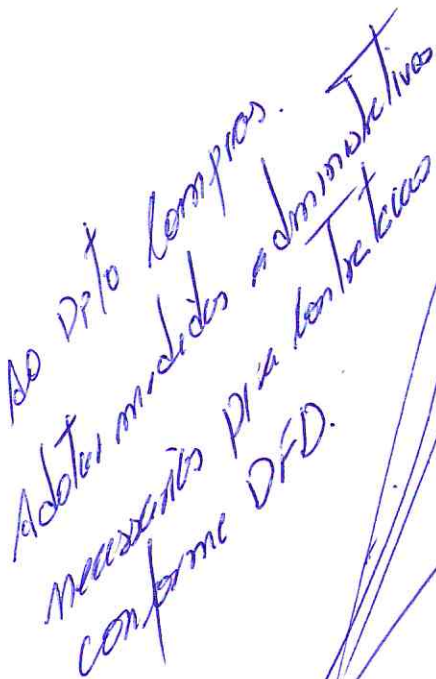 Ao Dpto Compras.
Adotar medidas administrativas
necessárias p/ a contratação
conforme DFD.